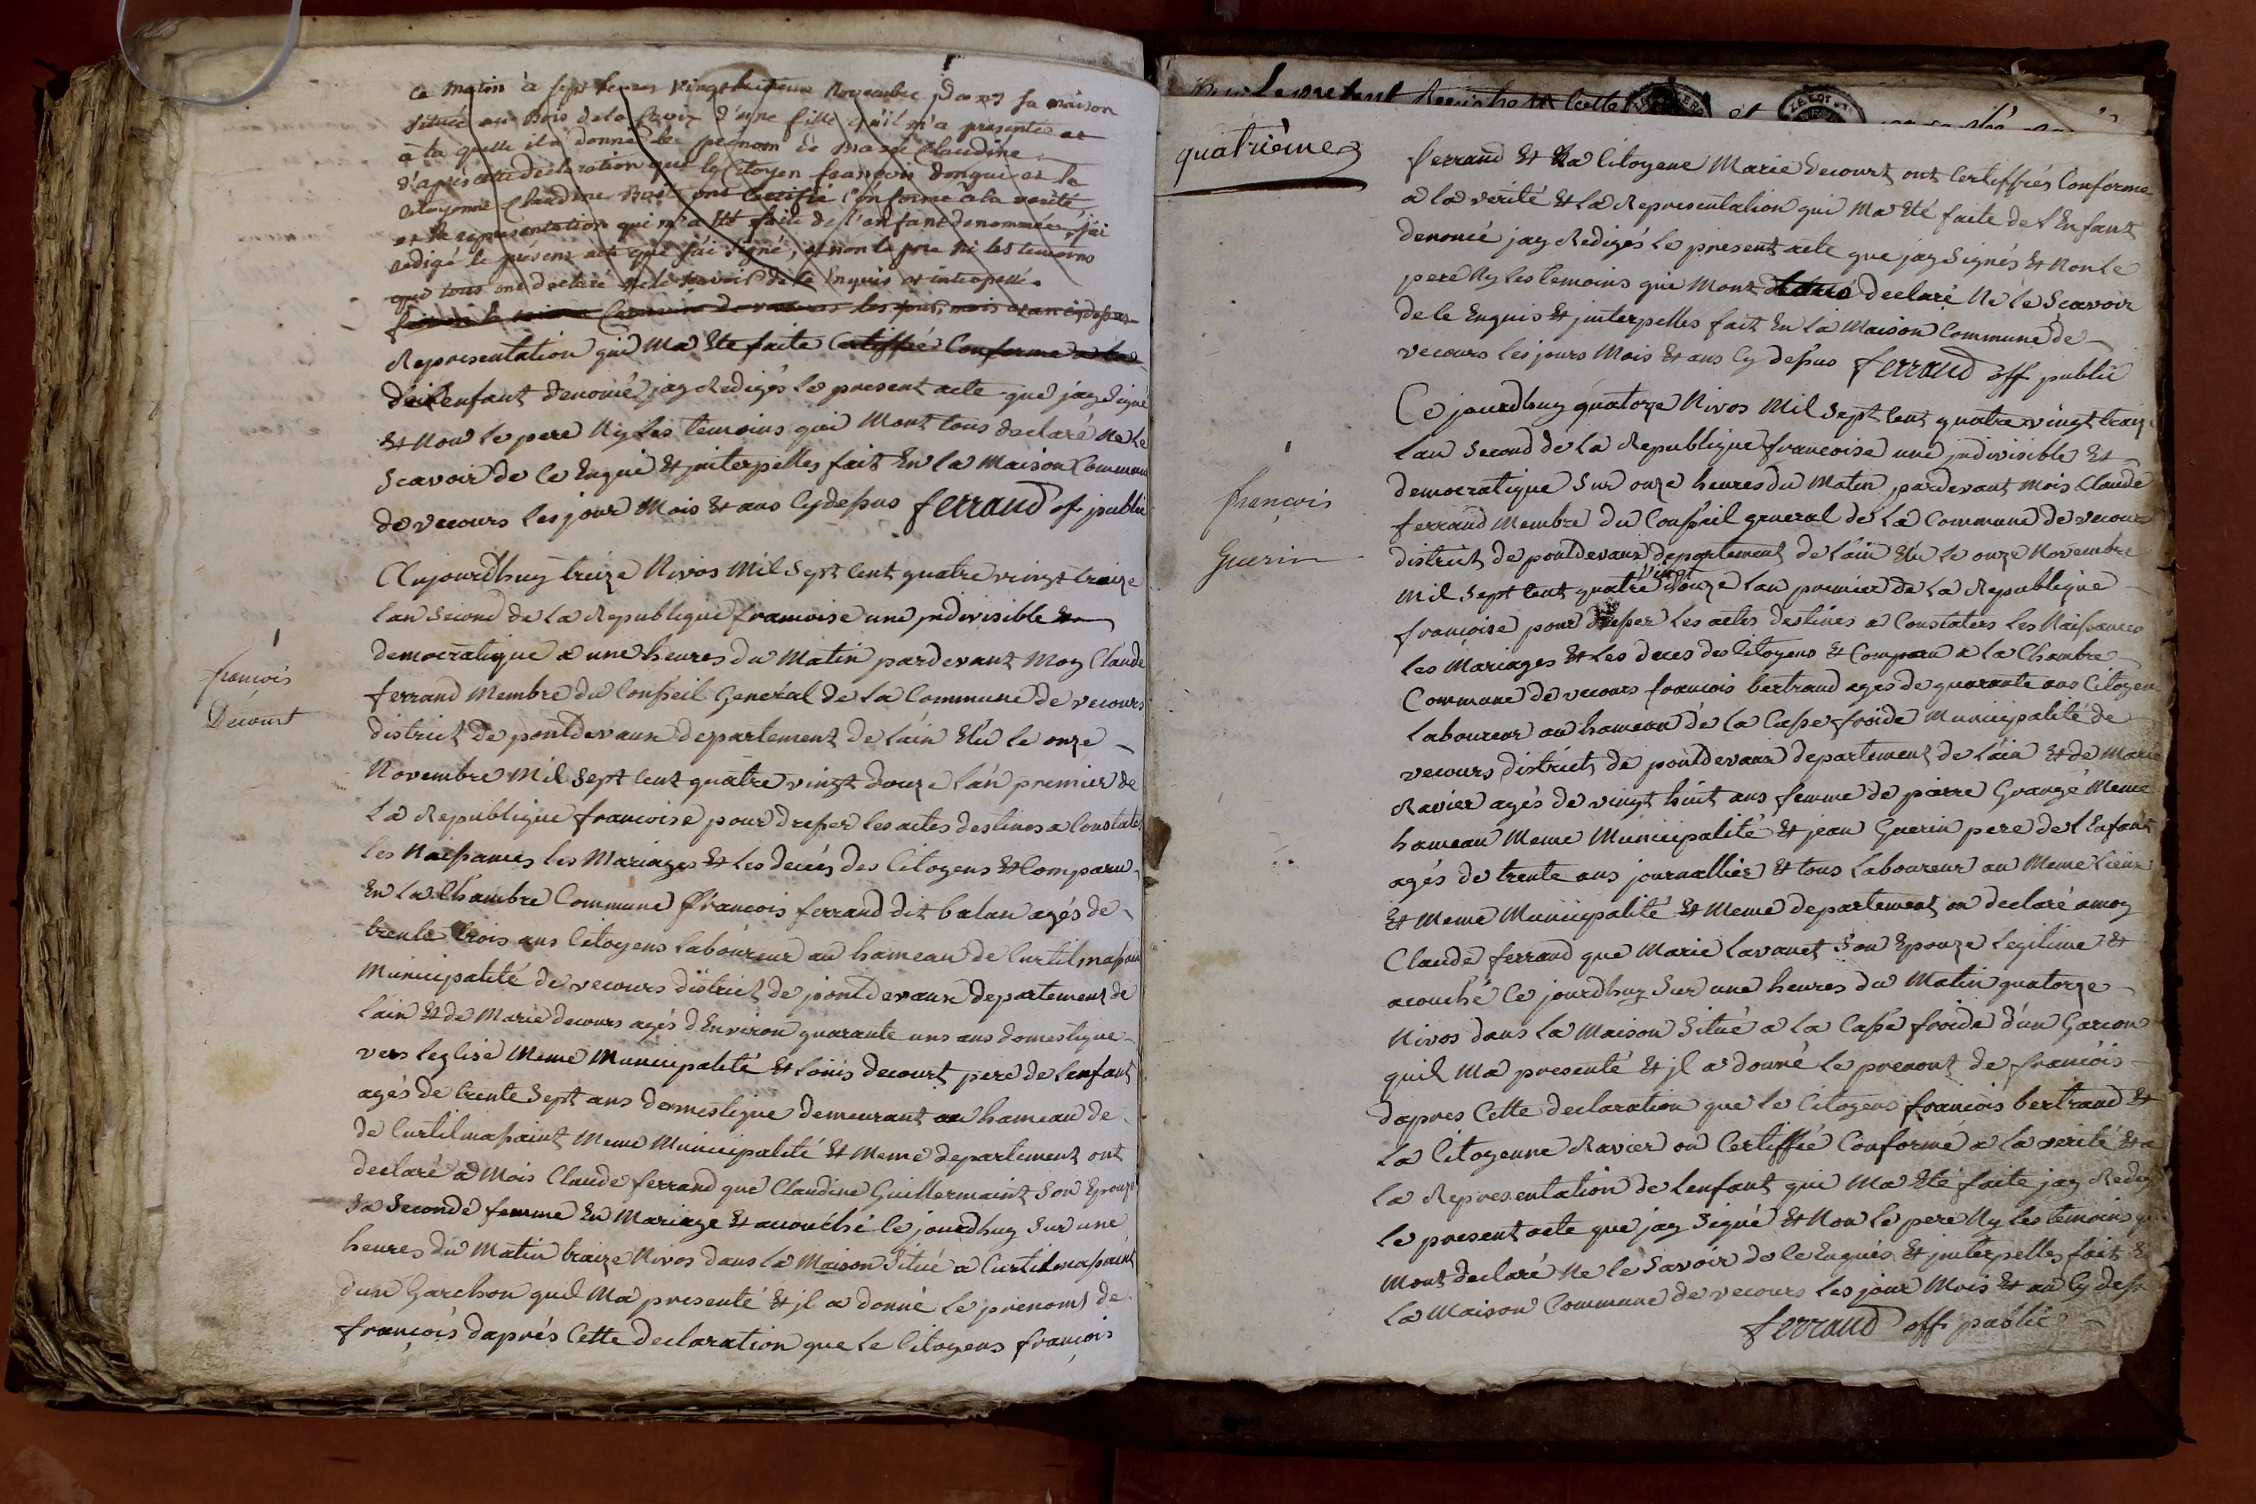 Ce matin à sept heures vingt huitieme Novembre, Dans sa maison
située au Bois de la Croix d'une fille qu'il m'a presentée et
à la quelle il a donné le prénom de Marie Claudine
d'après cette declaration que le Citoyen françois donguit et la
Citoyenne Claudine Buet ont Certifié Conforme à la verité
et la representation qui m'a été faite de l'enfant denommée, j'ai
redigé le présent acte que j'ai signé, et non le pere ni les temoins
qui tous ont declaré ne le savoir de le Enquis et interpellé.
les jour, mois et an ci dessus
Representation qui Ma Ete faite Certiffié Conforme a la
de lenfant denomé jay Redigés le present acte que jay Signé
Et Non le pere Ny Les temoins qui Mont tous declaré Ne le
Scavoir de Ce Enquï Et jnterpelles fait En la Maison Commune
de vecours les jour Mois Et ans Cydessus ferrand of public
françois
Decourt
Aujourdhuy treize Nivos Mil Sept Cent quatre vingt traize
lan Second de La Republique francoise une jndivisible Et
democratique a une heures du Matin pardevant Moy Claude
ferrand Membre du Conseil General de La Commune de vecours
district de pontdevaux departement de Lain Elu le onze
Novembre Mil Sept Cent quatre vingt douze Lan premier de
La Republique francoise pour dresser les actes destines a Constater
les Naissances les Mariages Et Les decés des Citoyens Et Comparu
En La Chambre Commune françois ferrand dit balan agés de
trente trois ans Citoyens Laboureur au hameau de Curtilmasain
Municipalité de vecours district de pontdevaux departement de
Lain Et de Marie decours agés dEnviron quarante uns ans domestique
vers leglise Meme Municipalité Et Loüis decourt pere de lenfant
agés de trente Sept ans domestique demeurant au hameau de
de Curtilmasaint Meme Municipalité Et Meme departement ont
declaré a Mois Claude ferrand que Claudine Guillermaint Son Epouze
Sa Seconde femme En Mariage Et acouché Ce jourdhuy Sur une
heures du Matin traize Nivos dans la Maison Situé a Curtilmasaint
dun Garchon quil Ma presenté Et jl a donné Le prenoms de
françois daprés Cette declaration que Le Citoyens françois
quatrième
ferrand Et La Citoyene Marie decourt ont Certiffiés Conforme
a la verité Et La Representation qui Ma Eté faite de lEnfant
denomé jay Redigés Le present acte que jay Signés Et Non Le
pere Ny les temoins qui Mont declaré Ne le Scavoir
de le Enquis Et jnterpelles fait En La Maison Commune de
vecours les jours Mois Et ans Cy dessus ferrand off public
françois
Guerin
Ce jourdhuy quatorze Nivos Mil Sept Cent quatre vingt traize
Lan Second de La Republique francoise une jndivisible Et
democratique Sur onze heures du Matin pardevant Mois Claude
ferrand Membre du Conseil general de La Commune de vecours
district de pontdevaux departement de Lain Elu le onze Novembre
Mil Sept Cent quatre vingt douze Lan premier de La Republique
françoise pour dresser les actes destinés a Constaters les Naissances
les Mariages Et les deces des Citoyens Et Comparu a la Chambre
Commune de vecours françois bertrand ages de quarante ans Citoyens
Laboureur au hameau de La Casse froide Municipalité de
vecours district de pontdevaux departement de Lain Et de Marie
Ravier agés de vingt huit ans femme de piarre Grangé Meme
hameau Meme Municipalité Et jean Guerin pere de lEnfant
agés de trente ans journallier Et tous Laboureur au Meme Lieux
Et Meme Municipalité Et Meme departement on declaré a moy
Claude ferrand que Marie Lavanet Son Epouze Legitime Et
acouché Ce jourdhuy Sur une heures du Matin quatorze
Nivos dans La Maison Situé a la Casse froide dun Garcon
quil Ma presenté Et jl a donné Le prenont de françois
dapres Cette declaration que Le Citoyens françois bertrand Et
La Citoyenne Ravier on Certiffié Conforme a La verité Et a
La Representation de Lenfant qui Ma Eté faite jay Redigé
Le present acte que jay Signé Et Non Le pere Ny les temoins qui
Mont declaré Ne le Savoir de le Enquis Et jnterpelles fait En
La Maison Commune de vecours les jour Mois Et an Cy dessus
ferrand off public